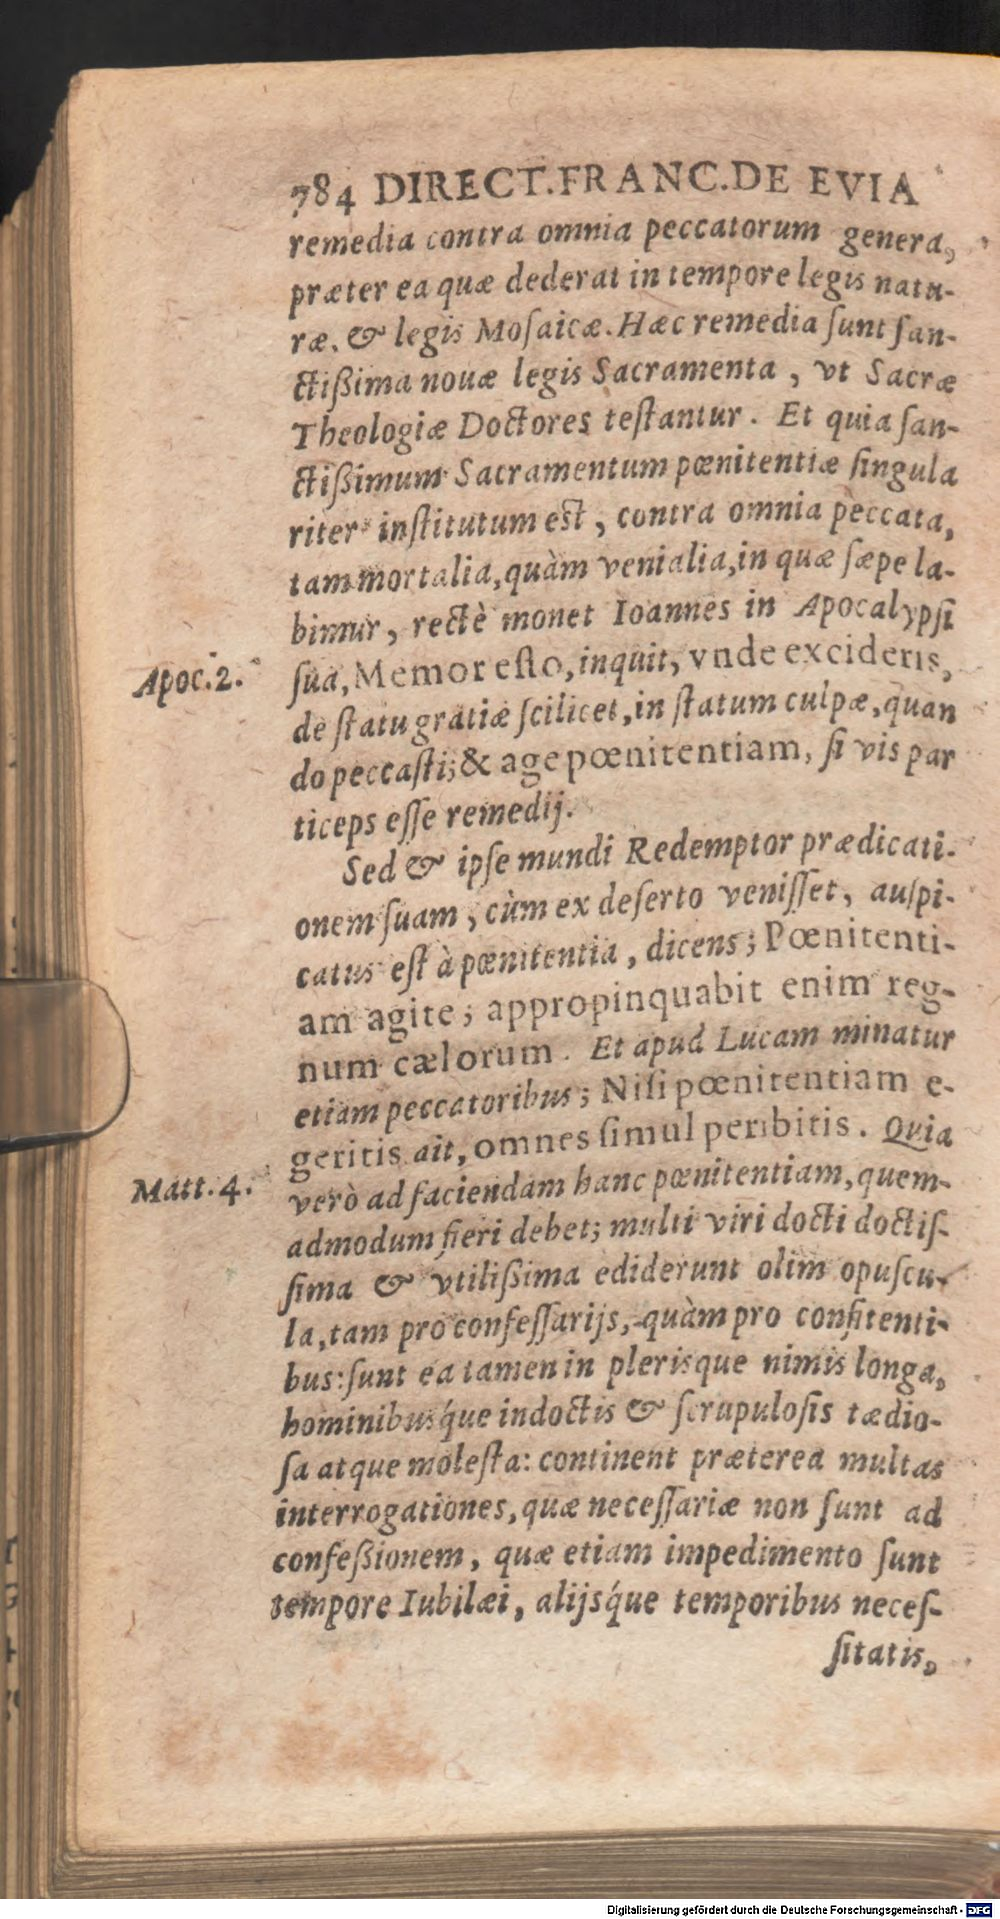 784 DIRECT.FRANC.DE EVIA
remedia contra omnia peccatorum genera,
præter ea quæ dederat in tempore legis natu-
ræ. & legis Mosaicæ. Hæc remedia ſunt ſan-
ctißima nouæ legis Sacramenta, vt Sacræ
Theologiæ Doctores teſtantur. Et quia ſan-
ctißimum Sacramentum pœnitentiæ ſingula
riter inſtitutum eſt, contra omnia peccata,
tam mortalia, quàm venialia, in quæ ſæpe la-
bimur, rectè monet Ioannes in Apocalypſi
Apoc. 2. ſua, Memor eſto, inquit, vnde excideris,
de ſtatu gratiæ ſcilicet, in ſtatum culpæ, quan
do peccaſti; & age pœnitentiam, ſi vis par
ticeps eſſe remedij.
Sed & ipſe mundi Redemptor prædicati-
onem ſuam, cùm ex deſerto veniſſet, auſpi-
catus eſt à pœnitentia, dicens; Pœnitenti-
am agite; appropinquabit enim reg-
num cælorum. Et apud Lucam minatur
etiam peccatoribus; Niſi pœnitentiam e-
geritis ait, omnes ſimul peribitis. Quia
Matt. 4. verò ad faciendam hanc pœnitentiam, quem-
admodum fieri debet; multi viri docti doctiſ-
ſima & vtilißima ediderunt olim opuſcu-
la, tam pro confeſſarijs, quàm pro confitenti-
bus: ſunt ea tamen in plerisque nimis longa,
hominibusq́ue indoctis & ſcrupuloſis tædio-
ſa atque moleſta: continent præterea multas
interrogationes, quæ neceſſariæ non ſunt ad
confeßionem, quæ etiam impedimento ſunt
tempore Iubilæi, alijsq́ue temporibus neceſ-
ſitatis,
Digitalisierung gefördert durch die Deutsche Forschungsgemeinschaft - DFG